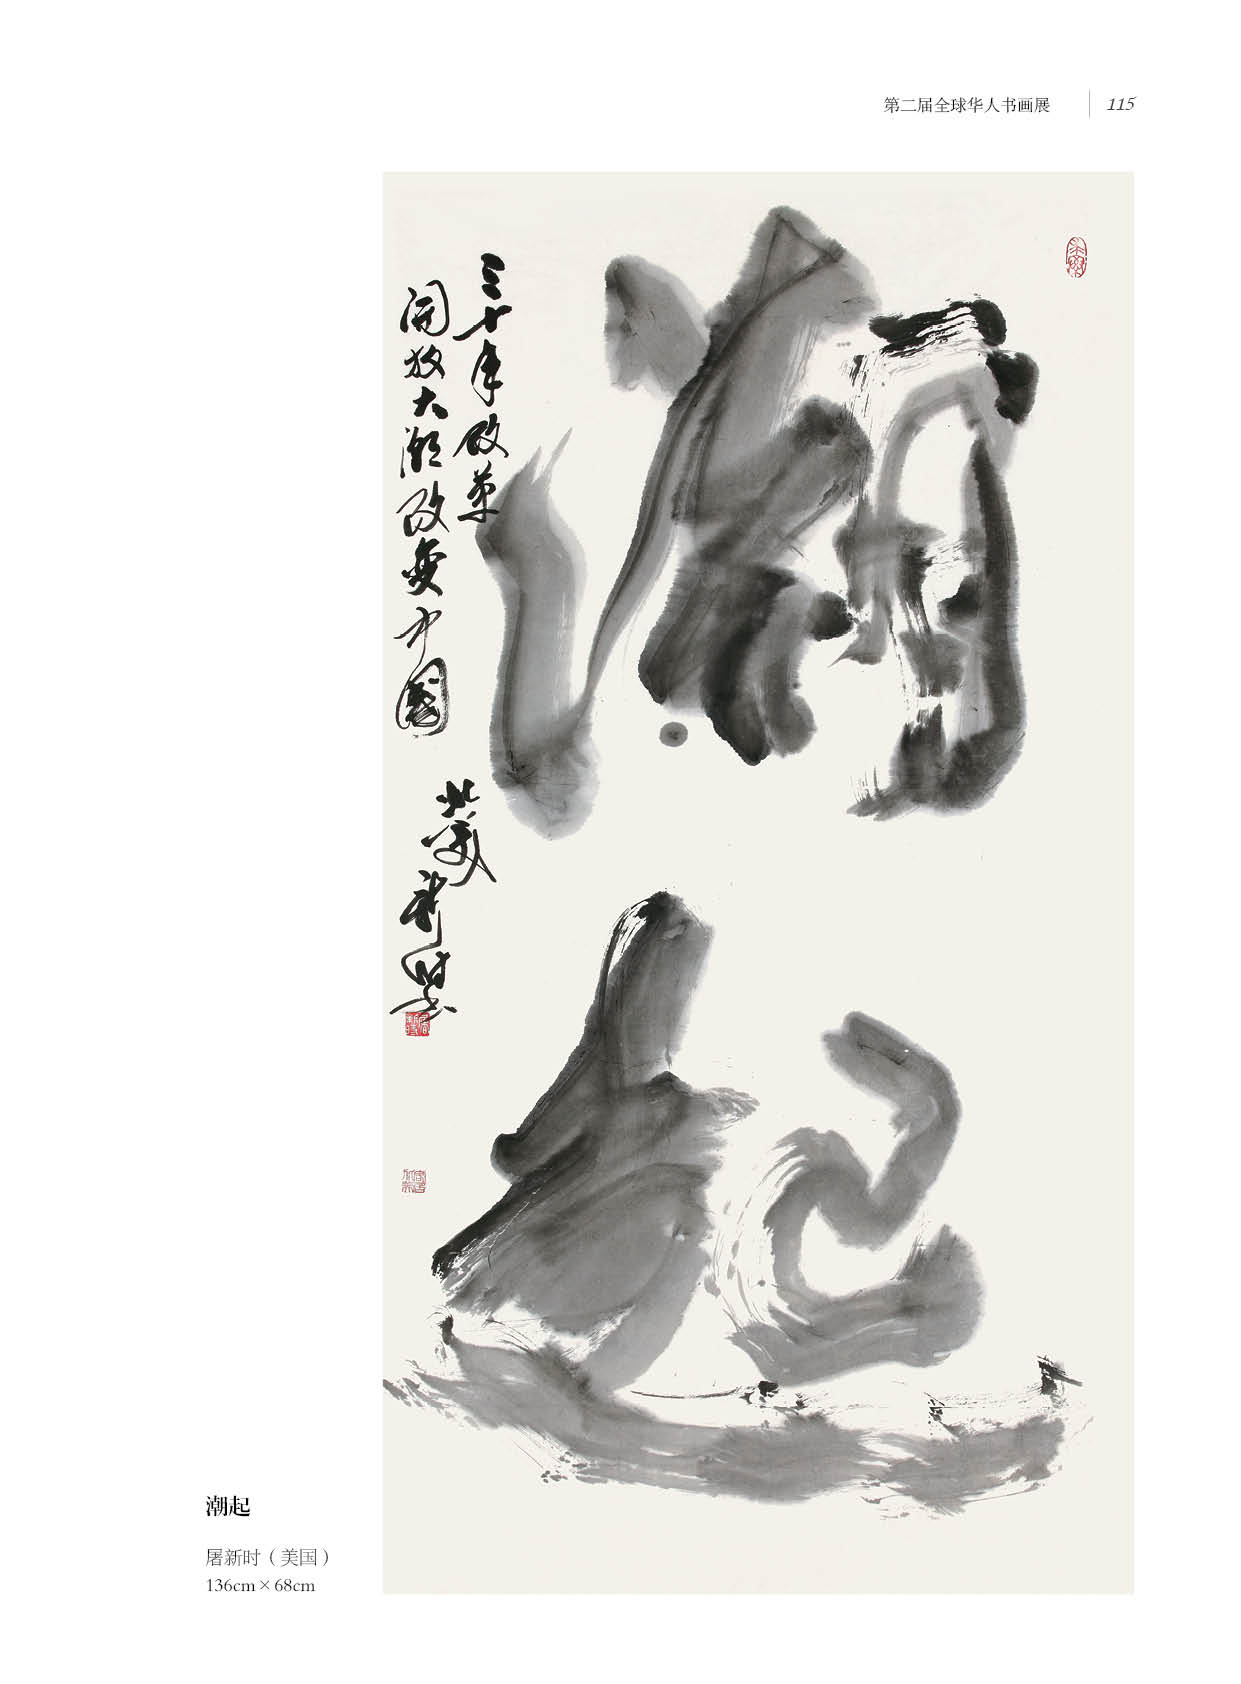 第二届全球华人书画展
115
潮起
三十年改革
开放大潮改变中國
北美新时書
潮起
屠新时（美国）
136cm×68cm